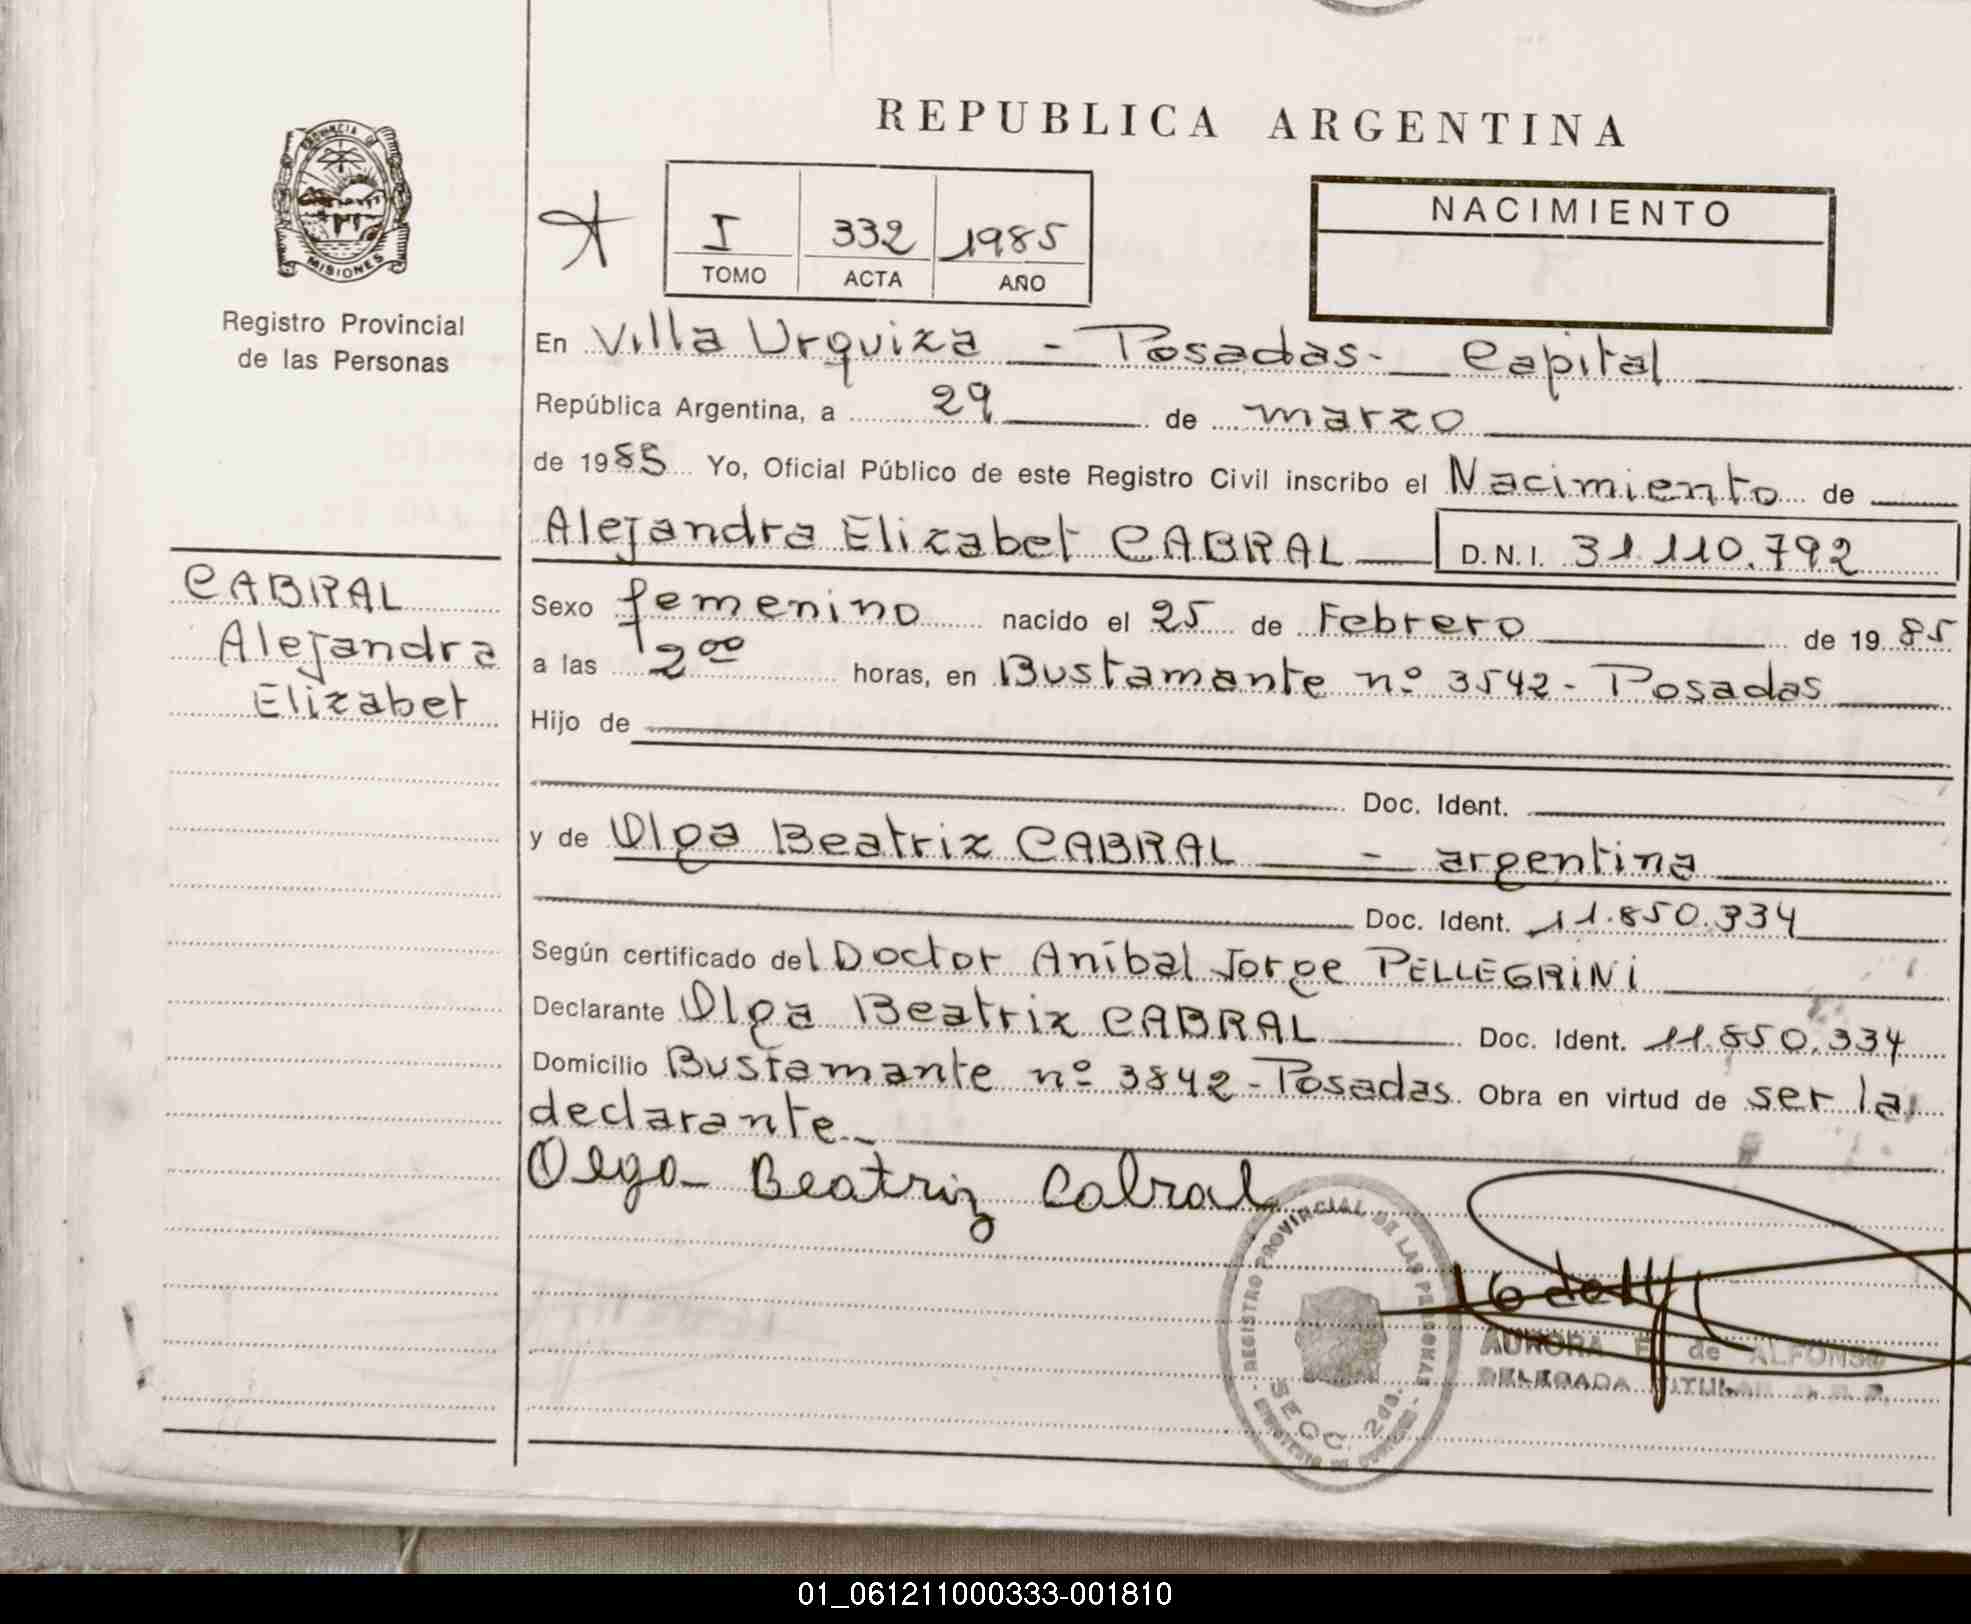 REPUBLICA ARGENTINA
PROVINCIA DE
MISIONES
Registro Provincial
de las Personas
I 332 1985
TOMO ACTA AÑO
NACIMIENTO
En Villa Urquiza - Posadas - Capital
República Argentina, a 29 de marzo
de 1985 Yo, Oficial Público de este Registro Civil inscribo el Nacimiento de
Alejandra Elizabet CABRAL D.N.I. 31.110.792
CABRAL
Alejandra
Elizabet
Sexo femenino nacido el 25 de Febrero de 1985
a las 2 00 horas, en Bustamante nº 3542 - Posadas
Hijo de
Doc. Ident.
y de Olga Beatriz CABRAL - argentina
Doc. Ident. 11.850.334
Según certificado del Doctor Aníbal Jorge PELLEGRINI
Declarante Olga Beatriz CABRAL Doc. Ident. 11.850.334
Domicilio Bustamante nº 3842 - Posadas. Obra en virtud de ser la
declarante.
Olga Beatriz Cabral
REGISTRO PROVINCIAL DE LAS PERSONAS
SECC. 2da.
AURORA de ALFONSO
DELEGADA TITULAR
01_061211000333-001810